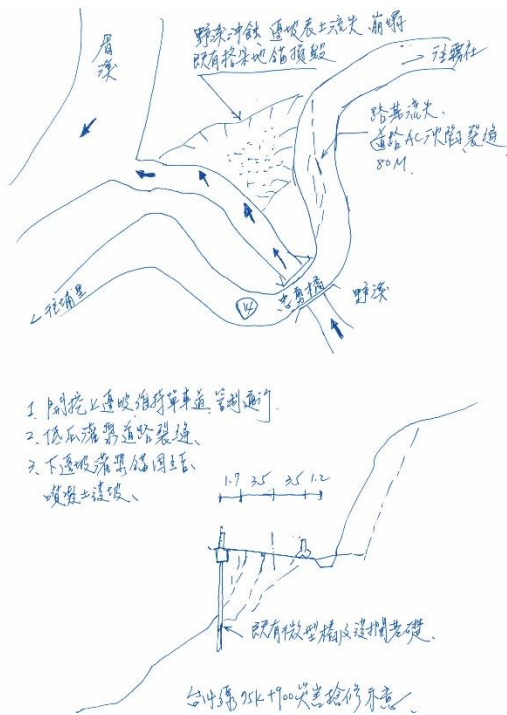 眉溪
野溪沖蝕 邊坡表土流失 崩塌
既有格梁地錨損毀
→往霧社
路基流失
道路AC沈陷裂縫
80M
←往埔里
14
忠勇橋
野溪
1. 開挖上邊坡維持單車道管制通行
2. 低压灌漿道路裂縫、
3. 下邊坡灌漿錨固工法、
噴漿土護坡、
1.7 3.5 3.5 1.2
既有微型樁及護欄基礎、
台14線75K+900災害搶修示意